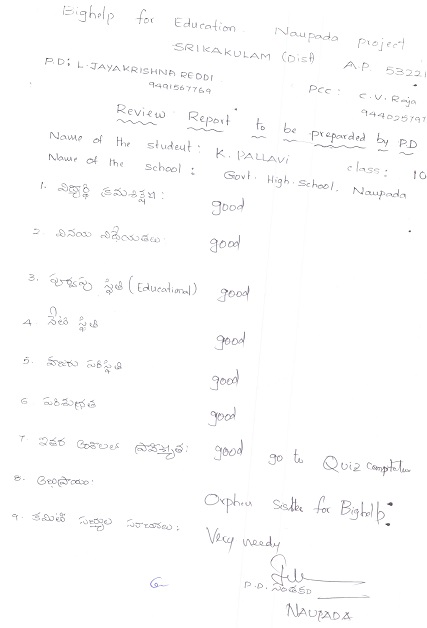 Bighelp for Education. Naupada project
SRIKAKULAM (Dist) A.P. 53221
P.D: L-JAYAKRISHNA REDDI
9491567769
Pcc: C.V. Raja
944025797
Review Report to be preparded by P.D
Name of the student: K. PALLAVI class: 10
Name of the school: Govt. High. School. Naupada
1. విద్యార్థి క్రమశిక్షణ: good
2. వినయ విధేయతలు: good
3. పూర్వపు స్థితి (Educational) good
4. నేటి స్థితి good
5. హాజరు పరిస్థితి good
6 పరిశుభ్రత good
7 ఇతర అంశాలలో ప్రావీణ్యత: good go to Quiz
8. అభిప్రాయం:
Orphen for Bighelp:
9. కమిటీ సభ్యుల సూచనలు: Very needy
6
P.D. సంతకం
NAUPADA